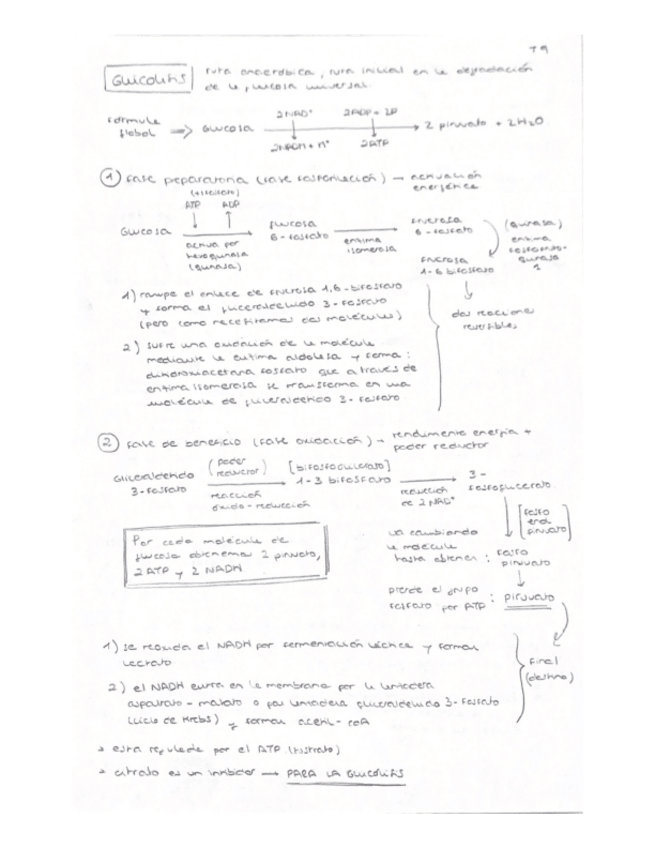 T9
GLUCOLISIS ruta anaerobica, ruta inicial en la degradación
de la glucosa universal.
Formula global ⇒ Glucosa 2NAD⁺ 2ADP + 2P → 2 piruvato + 2H₂O
2NADH + H⁺ 2ATP
① Fase preparatoria (fase fosforilación) → activación
energética
(+1 fosfato)
ATP ADP
Glucosa → glucosa 6-fosfato → fructosa 6-fosfato
activa por hexoquinasa (quinasa)
enzima isomerasa
(quinasa) enzima fosfofructoquinasa 1
fructosa 1-6 bifosfato
dos reacciones reversibles
1) rompe el enlace de fructosa 1,6-bifosfato
y forma el gliceraldehido 3-fosfato
(pero como necesitamos dos moléculas)
2) sufre una oxidación de la molécula
mediante la enzima aldolasa y forma:
dihidroxiacetona fosfato que a través de
enzima isomerasa se transforma en una
molécula de gliceraldehido 3-fosfato
② Fase de beneficio (fase oxidación) → rendimiento energía +
poder reductor
Gliceraldehido 3-fosfato (poder reductor) → [bifosfoglicerato]
1-3 bifosfato → 3-fosfoglicerato
reacción óxido-reducción
reducción de 2 NAD⁺
[fosfo enol piruvato]
Por cada molécula de
glucosa obtenemos 2 piruvato,
2 ATP y 2 NADH
va cambiando
la molécula
hasta obtener: fosfo piruvato
pierde el grupo
fosfato por ATP: piruvato
1) se reoxida el NADH por fermentación láctica y forman
lactato
2) el NADH entra en la membrana por la lanzadera
aspartato-malato o por lanzadera gliceraldehido 3-fosfato
(ciclo de Krebs) y forman acetil-coA
Final (destino)
→ esta regulada por el ATP (sustrato)
→ citrato es un inhibidor → PARA LA GLUCOLISIS